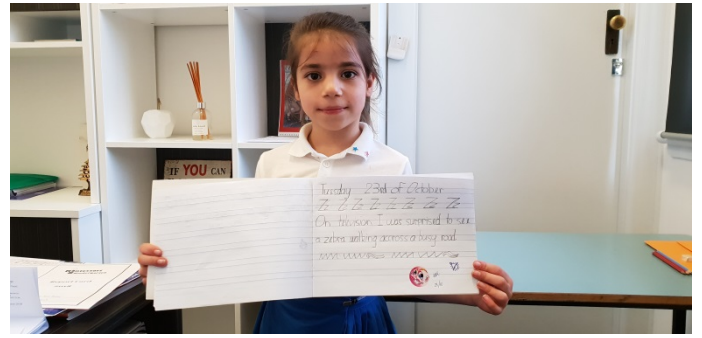 "IF YOU CAN
Tuesday 23rd of October
Zz Zz Zz Zz Zz Zz Zz Zz
On television I was surprised to see
a zebra walking across a busy road.